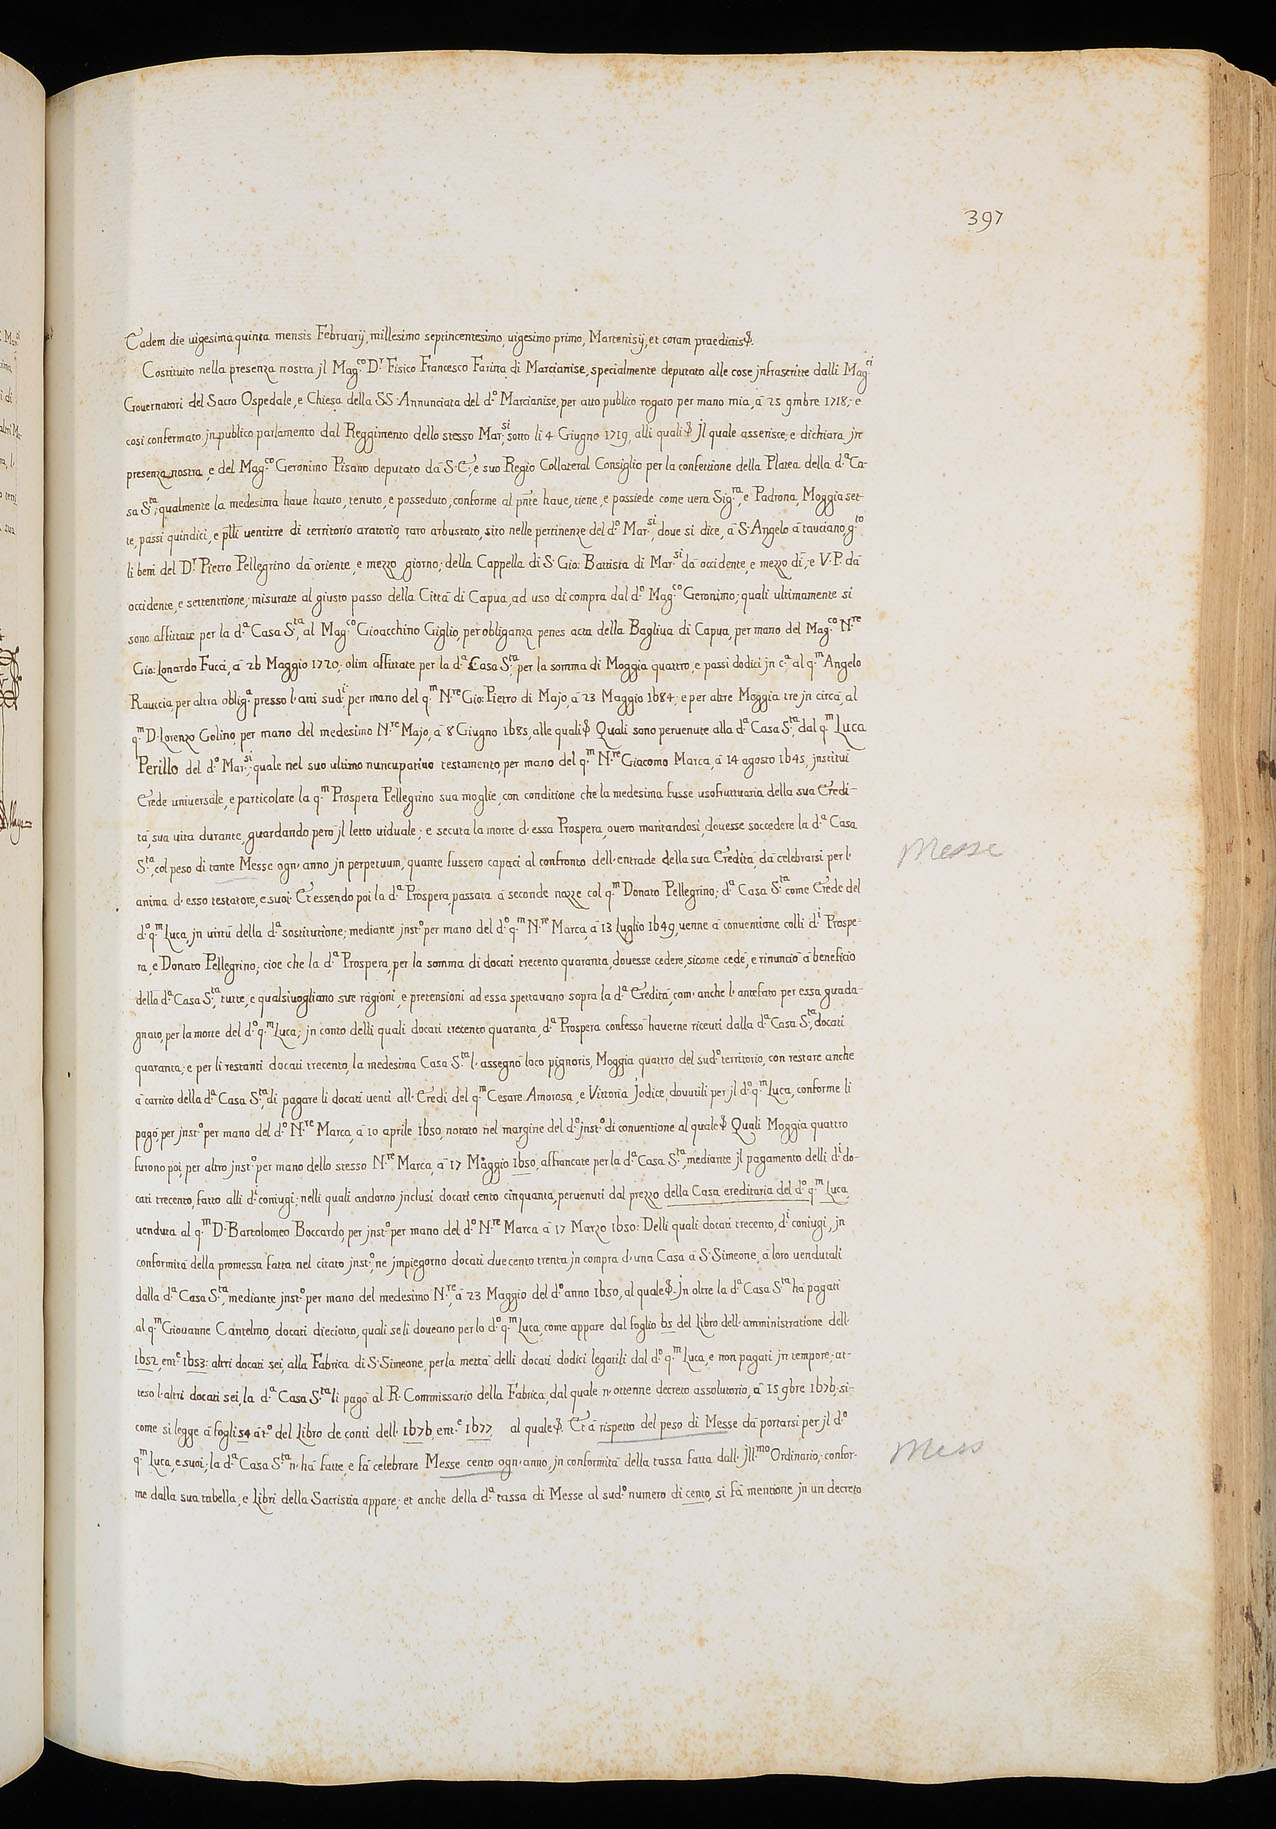 397
Eadem die uigesima quinta mensis Februarij, millesimo septincentesimo, uigesimo primo, Martenisij, et coram praedictis
Costituito nella presenza nostra jl Mag.co D.r Fisico Francesco Farina di Marcianise, specialmente deputato alle cose jnfrascritte dalli Mag.ci
Gouernatori del Sacro Ospedale, e Chiesa della SS. Annunciata del d.o Marcianise, per atto publico rogato per mano mia, à 25 9mbre 1718; e
così confermato jn publico parlamento dal Reggimento dello stesso Mar.si sotto li 4 Giugno 1719, alli quali jl quale asserisce, e dichiara jn
presenza nostra, e del Mag.co Geronimo Pisano deputato dà S. E., e suo Regio Collateral Consiglio per la confettione della Platea della d.a Ca-
sa S.ta; qualmente la medesima haue hauto, tenuto, e posseduto, conforme al pnte haue, tiene, e possiede come uera Sig.ra, e Padrona, Moggia set-
te, passi quindici, e pssi uentitre di territorio aratorio, raro arbustato, sito nelle pertinenze del d.o Mar.si, doue si dice, à S. Angelo à tauciano, g.to
li beni del D.r Pietro Pellegrino dà oriente, e mezzo giorno; della Cappella di S. Gio: Battista di Mar.si dà occidente, e mezzo dì; e V. P. dà
occidente, e settentrione; misurate al giusto passo della Città di Capua, ad uso di compra dal d.o Mag.co Geronimo; quali ultimamente si
sono affittate per la d.a Casa S.ta, al Mag.co Gioacchino Giglio, per obliganza penes acta della Bagliua di Capua, per mano del Mag.co N.re
Gio: Lonardo Fucci, à 26 Maggio 1720; olim affittate per la d.a Casa S.ta per la somma di Moggia quattro, e passi dodici jn c.a al q.m Angelo
Rauccia, per altra oblig.a presso l'atti sud.i per mano del q.m N.re Gio: Pietro di Majo, à 23 Maggio 1684; e per altre Moggia tre jn circa, al
q.m D. Lorenzo Golino, per mano del medesimo N.re Majo, à 8 Giugno 1685, alle quali Quali sono peruenute alla d.a Casa S.ta, dal q.m Luca
Perillo del d.o Mar.si; quale nel suo ultimo nuncupatiuo testamento, per mano del q.m N.re Giacomo Marca, à 14 agosto 1645, jnstituì
Erede uniuersale, e particolare la q.m Prospera Pellegrino sua moglie, con conditione che la medesima fusse usofruttuaria della sua Eredi-
tà, sua uita durante, guardando però jl letto uiduale; e secuta la morte d'essa Prospera, ouero maritandosi, douesse soccedere la d.a Casa
S.ta, col peso di tante Messe ogn'anno, jn perpetuum, quante fussero capaci al confronto dell'entrade della sua Eredità, dà celebrarsi per l'
Messe
anima d'esso testatore, e suoi. Et essendo poi la d.a Prospera, passata à seconde nozze col q.m Donato Pellegrino; d.a Casa S.ta come Erede del
d.o q.m Luca, jn uirtù della d.a sostitutione; mediante jnst.o per mano del d.o q.m N.re Marca, à 13 Luglio 1649, uenne à conuentione colli d.i Prospe-
ra, e Donato Pellegrino; cioè che la d.a Prospera, per la somma di docati trecento quaranta, douesse cedere, sicome cedè, e rinunciò à beneficio
della d.a Casa S.ta, tutte, e qualsiuogliano sue ragioni, e pretensioni ad essa spettauano sopra la d.a Eredità, com'anche l'antefato per essa guada-
gnato, per la morte del d.o q.m Luca; jn conto delli quali docati trecento quaranta, d.a Prospera confessò hauerne riceuti dalla d.a Casa S.ta, docati
quaranta; e per li restanti docati trecento, la medesima Casa S.ta l'assegnò loco pignoris, Moggia quattro del sud.o territorio, con restare anche
à carrico della d.a Casa S.ta, di pagare li docati uenti all'Eredi del q.m Cesare Amorosa, e Vittoria Jodice, douutili per jl d.o q.m Luca, conforme li
pagò, per jnst.o per mano del d.o N.re Marca, à 10 aprile 1650, notato nel margine del d.o jnst.o di conuentione al quale Quali Moggia quattro
furono poi, per altro jnst.o per mano dello stesso N.re Marca, à 17 Maggio 1650, affrancate per la d.a Casa S.ta, mediante jl pagamento delli d.i do-
cati trecento, fatto alli d.i coniugi; nelli quali andorno jnclusi docati cento cinquanta, peruenuti dal prezzo della Casa ereditaria del d.o q.m Luca,
uenduta al q.m D. Bartolomeo Boccardo, per jnst.o per mano del d.o N.re Marca à 17 Marzo 1650: Delli quali docati trecento, d.i coniugi, jn
conformità della promessa fatta nel citato jnst.o, ne jmpiegorno docati due cento trenta jn compra d'una Casa à S. Simeone, à loro uendutali
dalla d.a Casa S.ta, mediante jnst.o per mano del medesimo N.re, à 23 Maggio del d.o anno 1650, al quale. Jn oltre la d.a Casa S.ta hà pagati
al q.m Giouanne Cantelmo, docati dieciotto, quali se li doueano per lo d.o q.m Luca, come appare dal foglio 65 del Libro dell'amministratione dell'
1652, ent.e 1653: altri docati sei, alla Fabrica di S. Simeone, per la mettà delli docati dodici legatili dal d.o q.m Luca, e non pagati jn tempore; at-
teso l'altri docati sei, la d.a Casa S.ta li pagò al R. Commissario della Fabrica, dal quale n'ottenne decreto assolutorio, à 15 9bre 1676, si-
come si legge à fogli 54 à t.o del Libro de conti dell'1676, ent.e 1677 al quale. Et à rispetto del peso di Messe dà portarsi per jl d.o
q.m Luca, e suoi; la d.a Casa S.ta n'hà fatte, e fà celebrare Messe cento ogn'anno, jn conformità della tassa fatta dall'Jll.mo Ordinario; confor-
Mess
me dalla sua tabella, e Libri della Sacristia appare; et anche della d.a tassa di Messe al sud.o numero di cento, si fà mentione jn un decreto